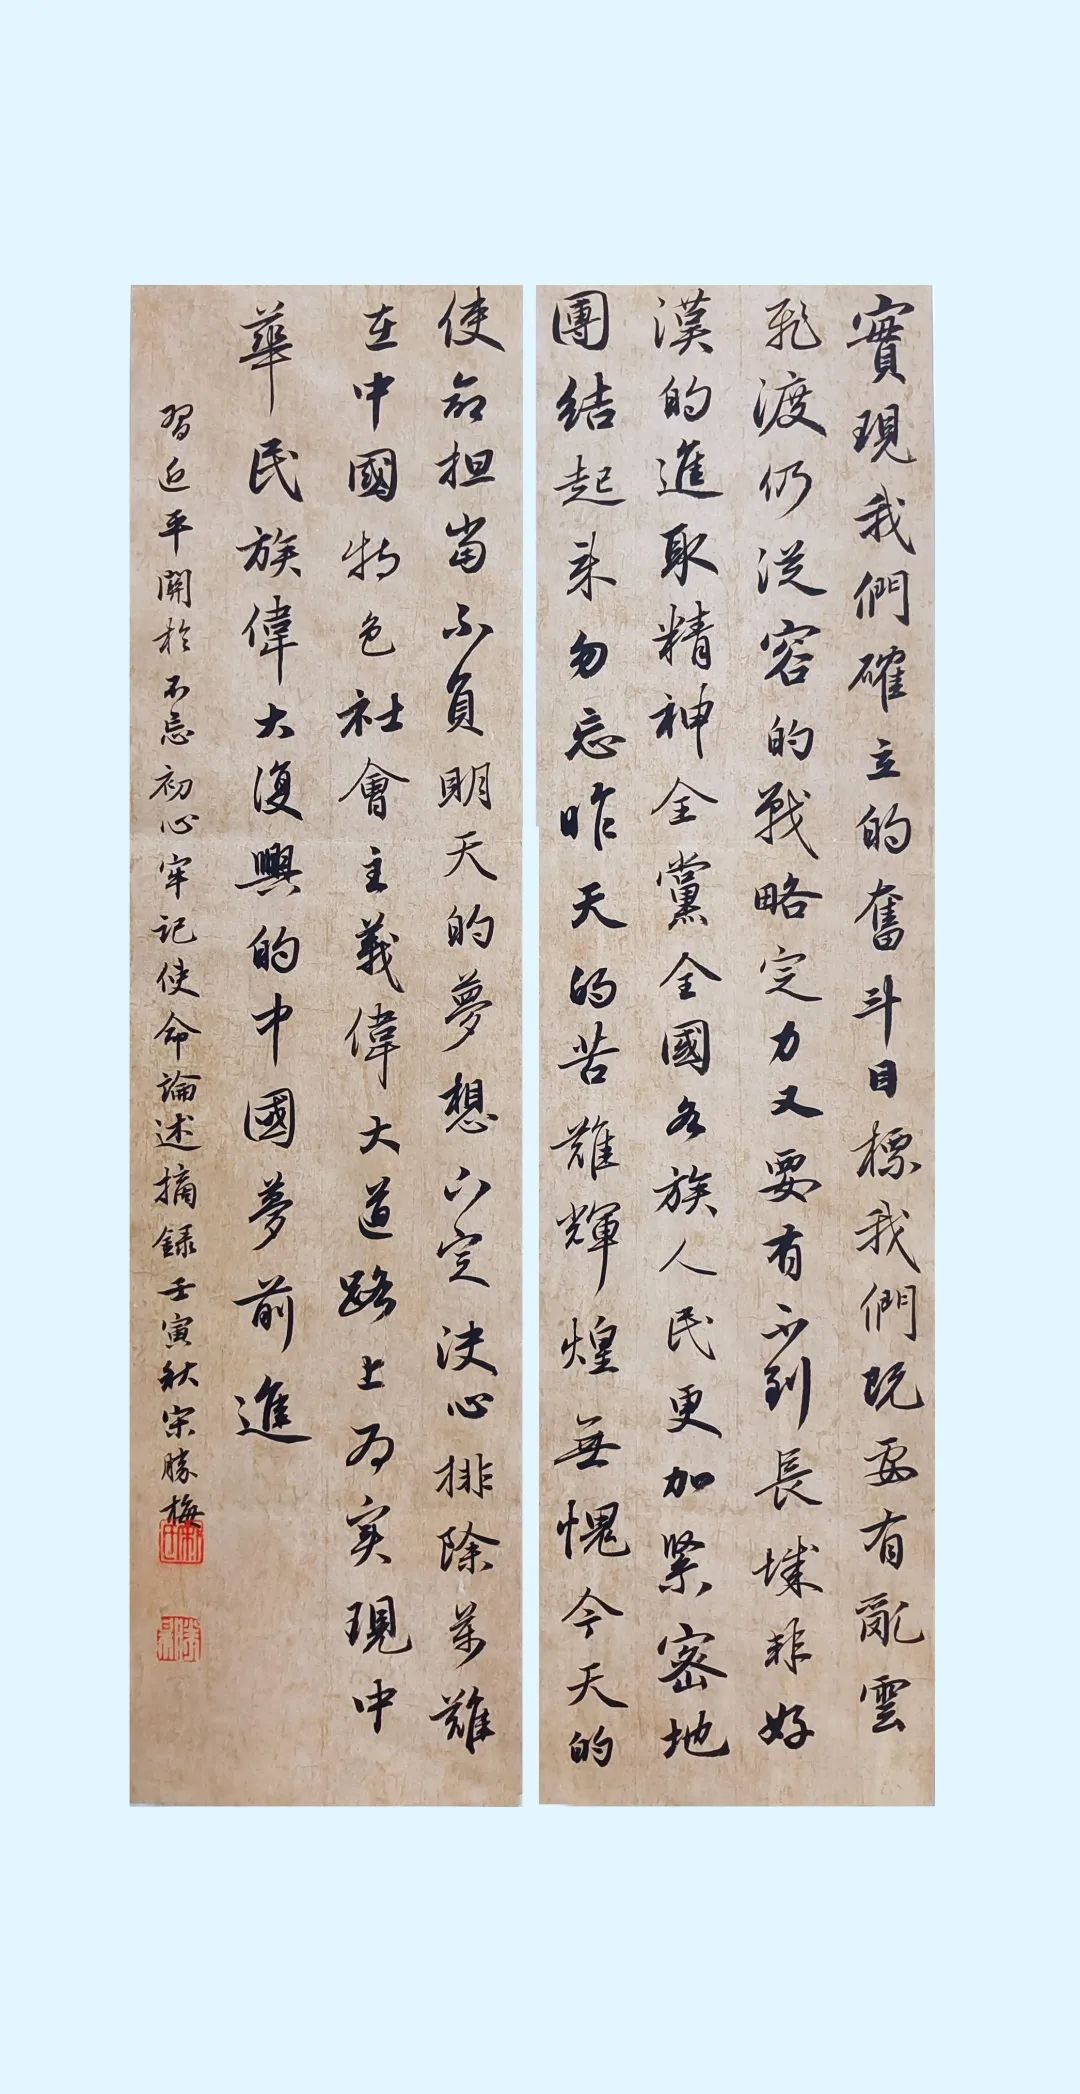 實現我們確立的奮斗目標我們既要有亂雲
飛渡仍從容的戰略定力又要有不到長城非好
漢的進取精神全黨全國各族人民更加緊密地
團結起来勿忘昨天的苦難輝煌無愧今天的
使命担當不負明天的夢想下定決心排除萬難
在中國特色社會主義偉大道路上为实現中
華民族偉大復興的中國夢前進
習近平關於不忘初心牢記使命論述摘録壬寅秋宋勝梅